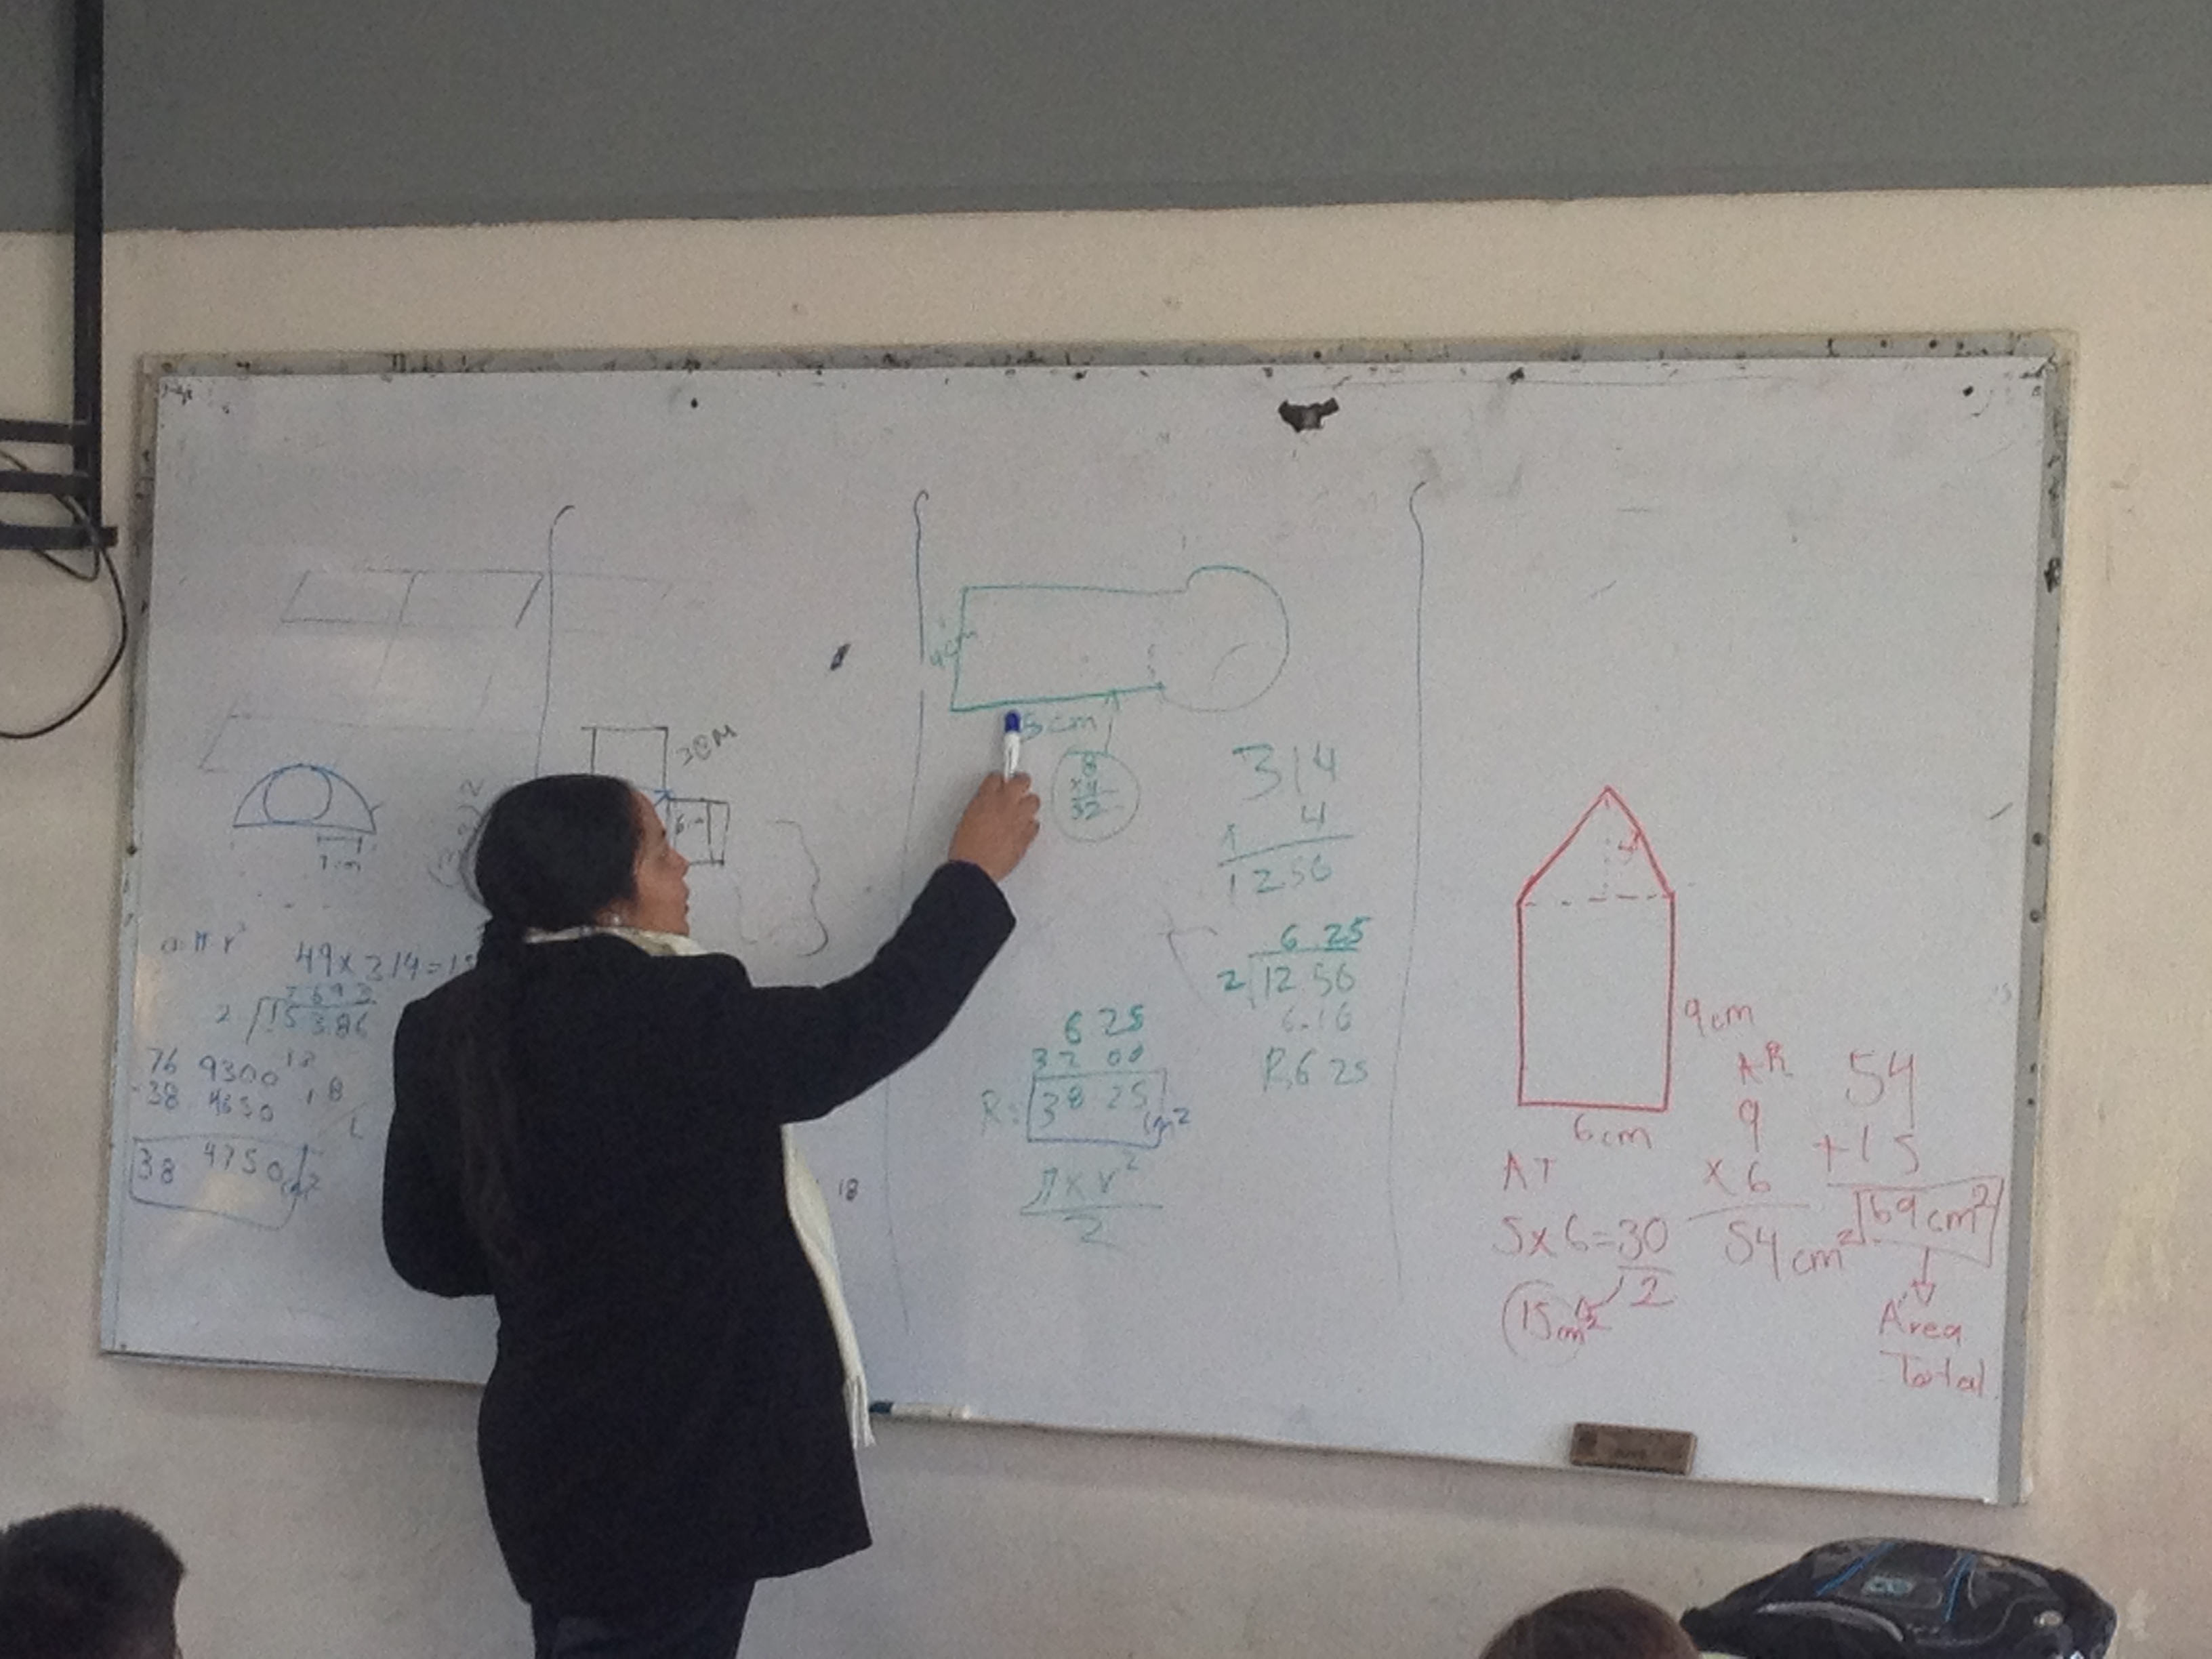 7cm
49x314=15
7693
2 15386
76 9300
-38 4650
38 4750cm2
3CM
6cm
18
4cm
8cm
8
x4
32
314
4
1256
6 25
2 12.56
6.16
R. 6 25
6 25
32 00
R: 38 25 cm2
π x r2
2
9cm
6cm
AT
5x6=30
2
15cm2
AR
9
x6
54cm2
54
+15
69cm2
Area
Total